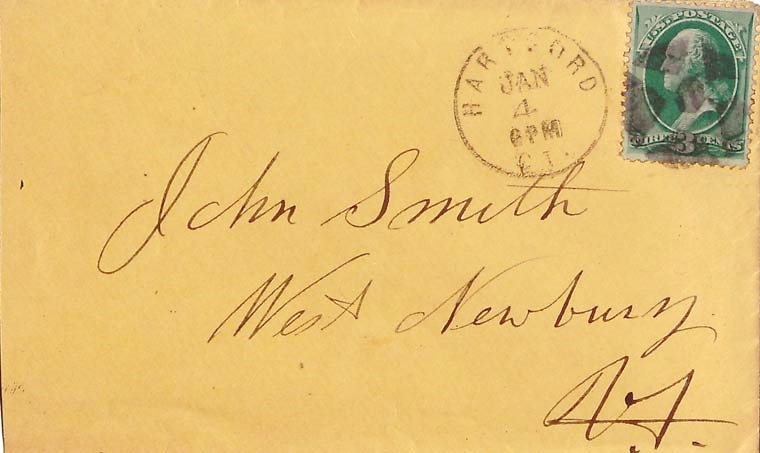 U.S. POSTAGE
HARTFORD
JAN
4
6PM
CT.
THREE 3 CENTS
John Smith
West Newbury
Vt.